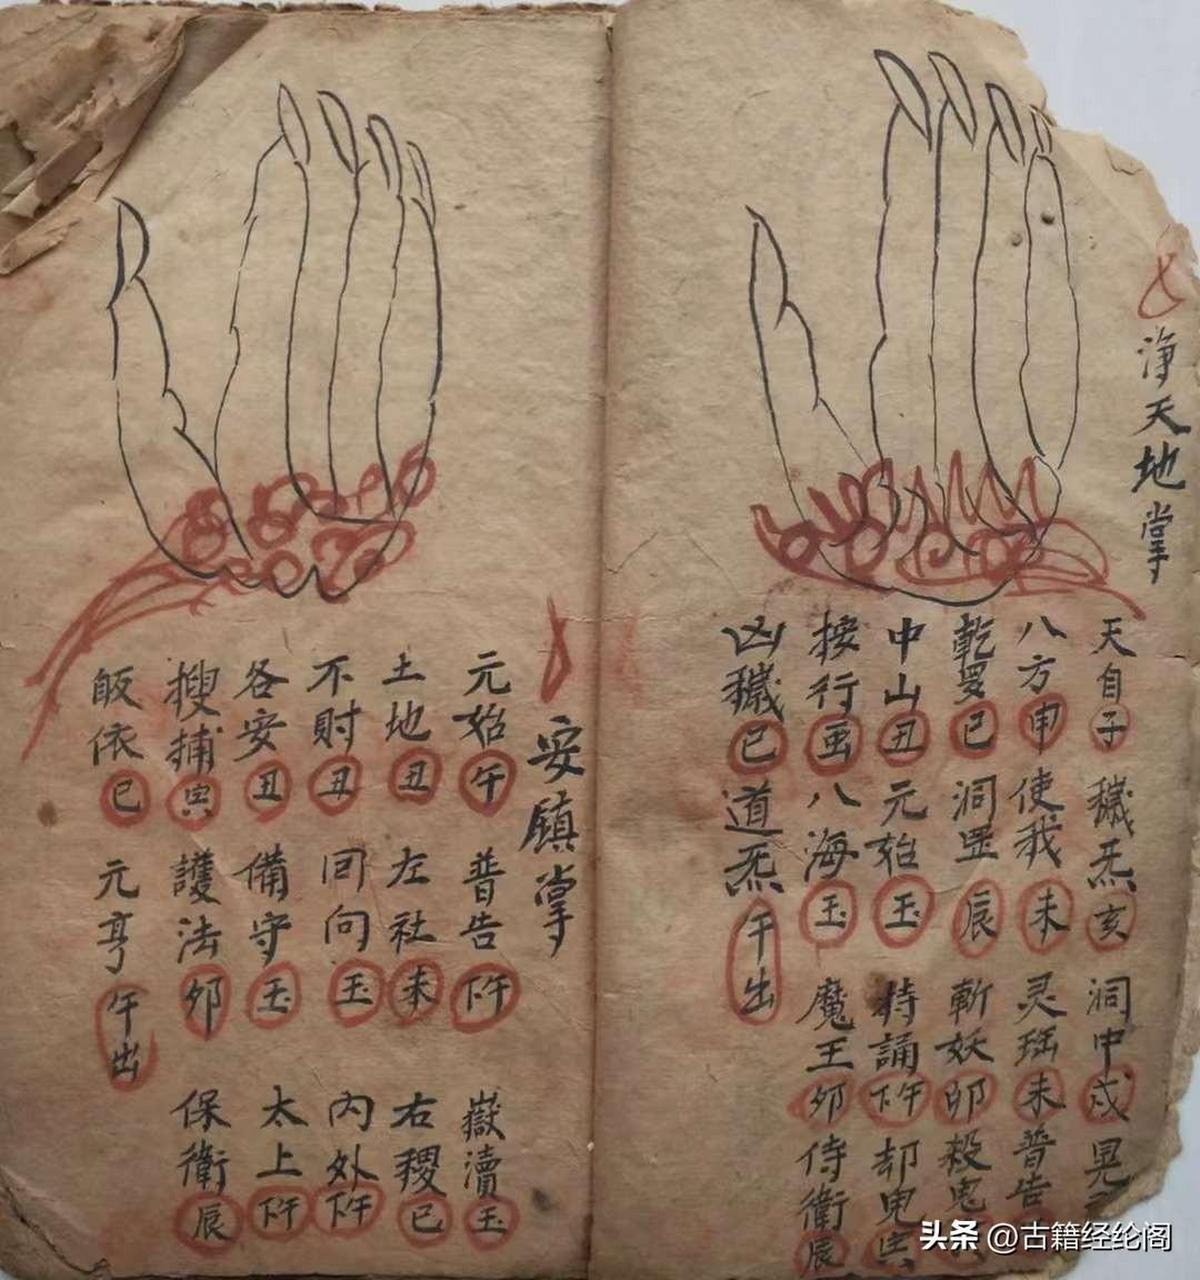 淨天地掌
天自子 穢炁亥 洞中戌 晃
八方申 使我未 灵 未 普告
乾罗巳 洞罡辰 斬妖卯 殺鬼
中山丑 元始玉 持誦下午 却鬼
按行 八海玉 魔王卯 侍衛辰
凶穢巳 道炁午出
安鎮掌
元始午 普告下午 嶽瀆玉
土地丑 左社未 右稷巳
不財丑 回向玉 内外下午
各安丑 備守玉 太上下午
搜捕 護法卯 保衛辰
皈依巳 元亨午出
头条 @古籍经纶阁